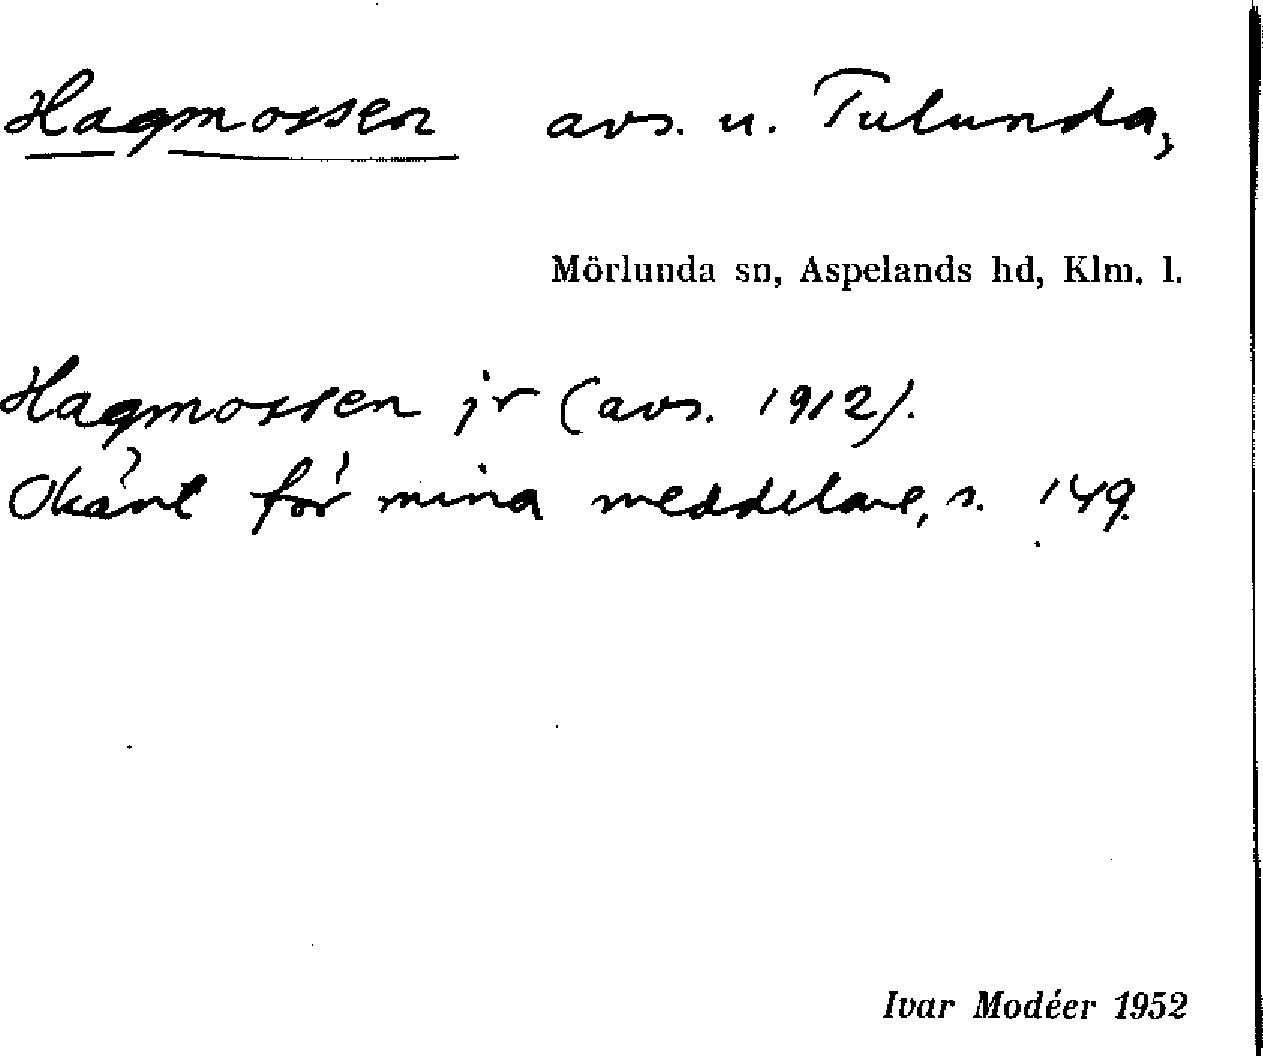 Hagmossen avs. u. Tulunda,
Mörlunda sn, Aspelands hd, Klm. l.
Hagmossen jr (avs. 1912).
Okänt för mina meddelare, s. 149.
Ivar Modéer 1952